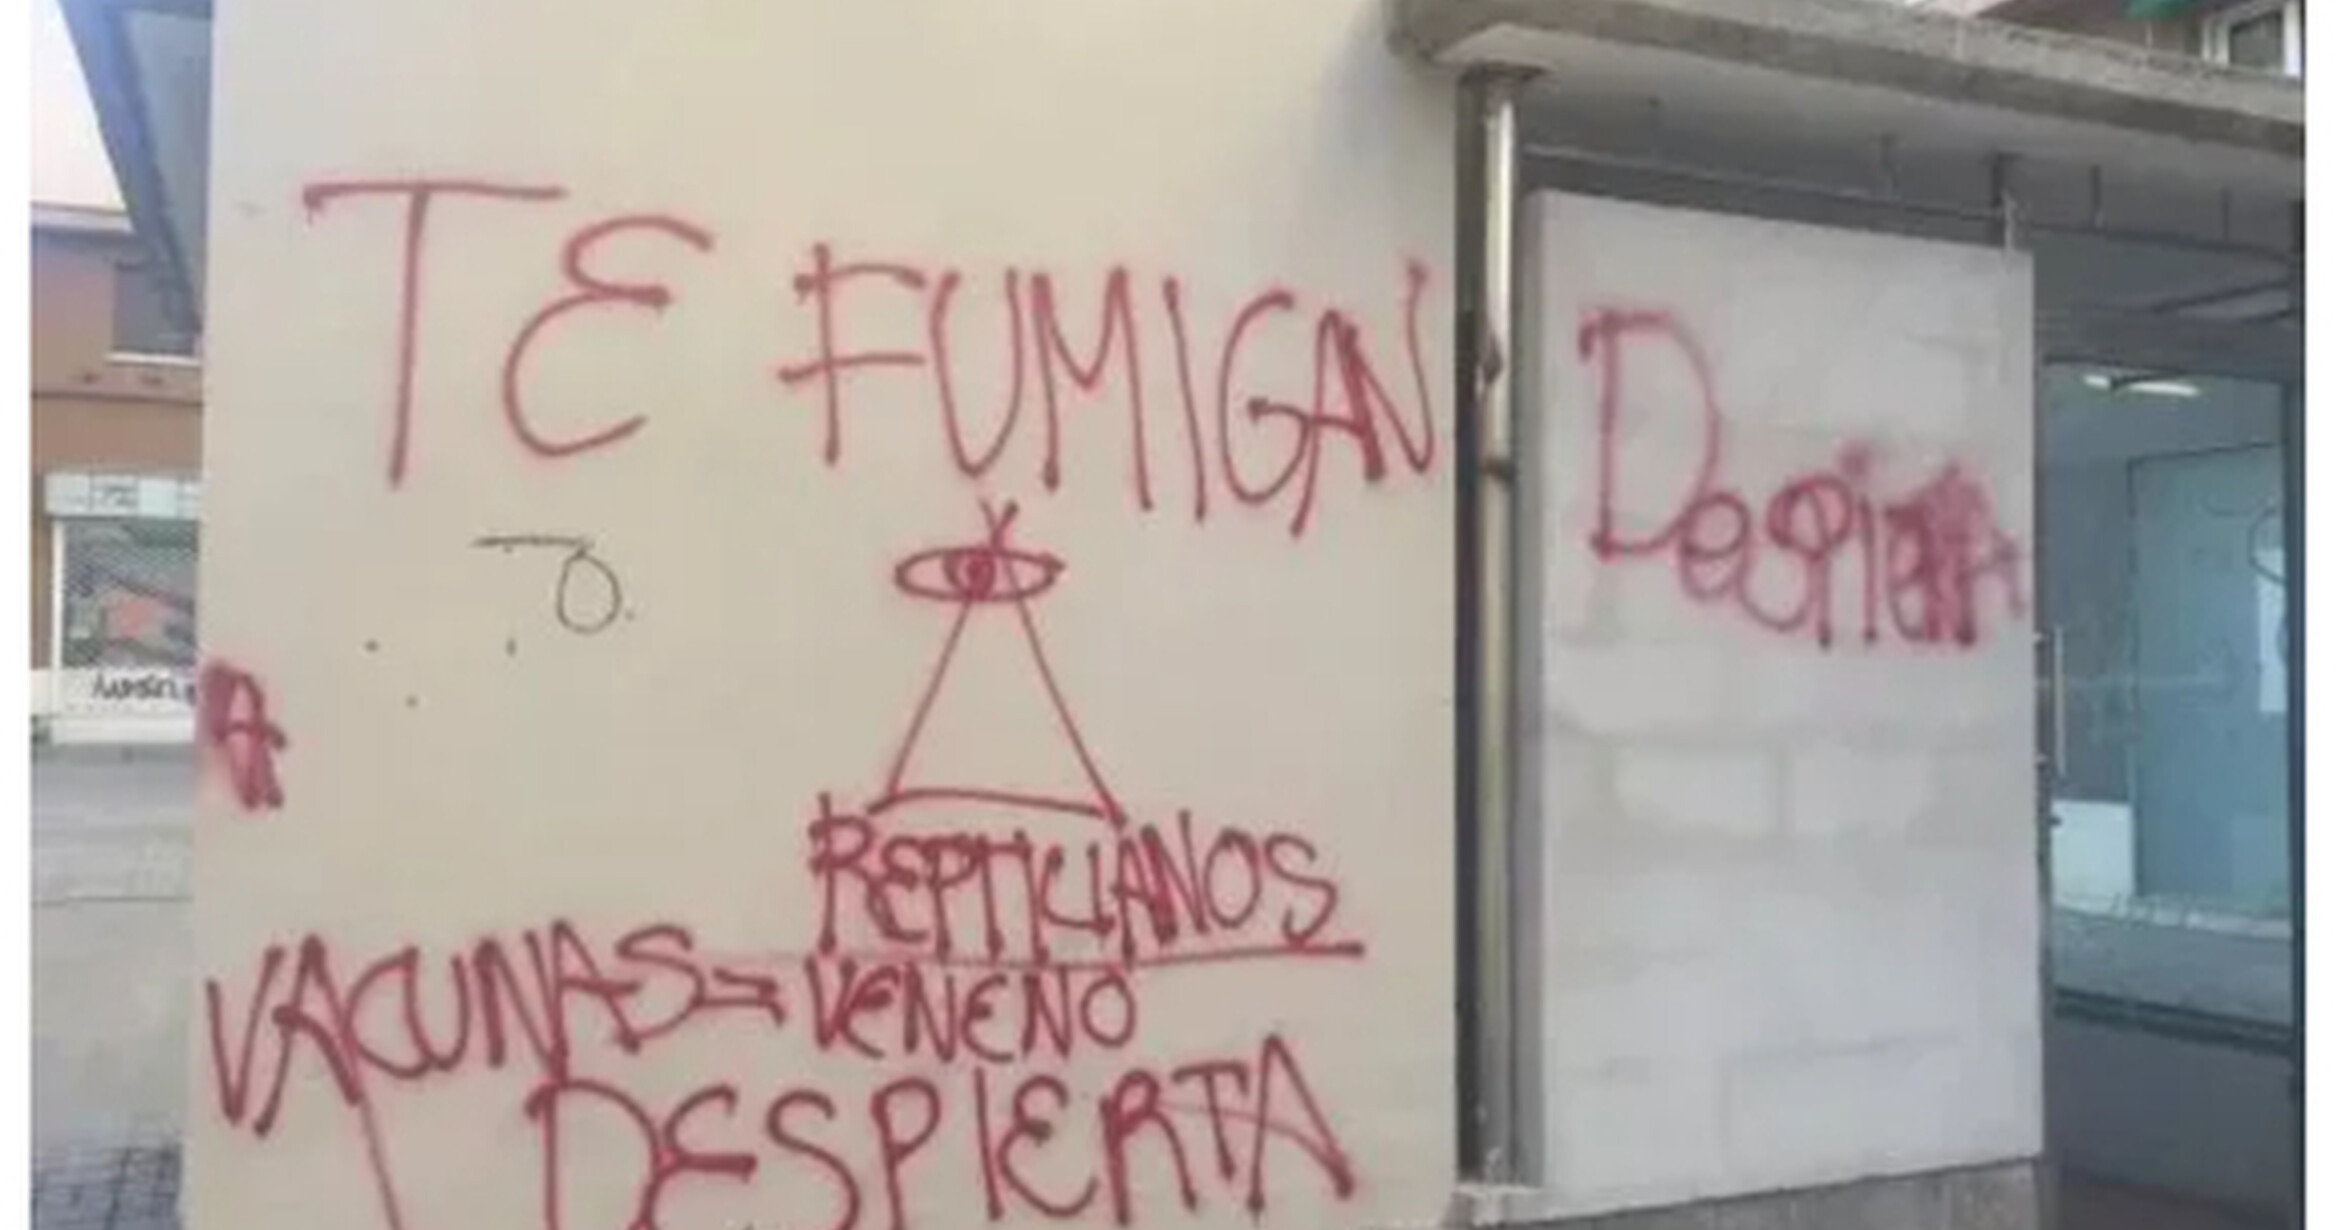 TE FUMIGAN
Despierta
REPTILIANOS
VACUNAS = VENENO
DESPIERTA